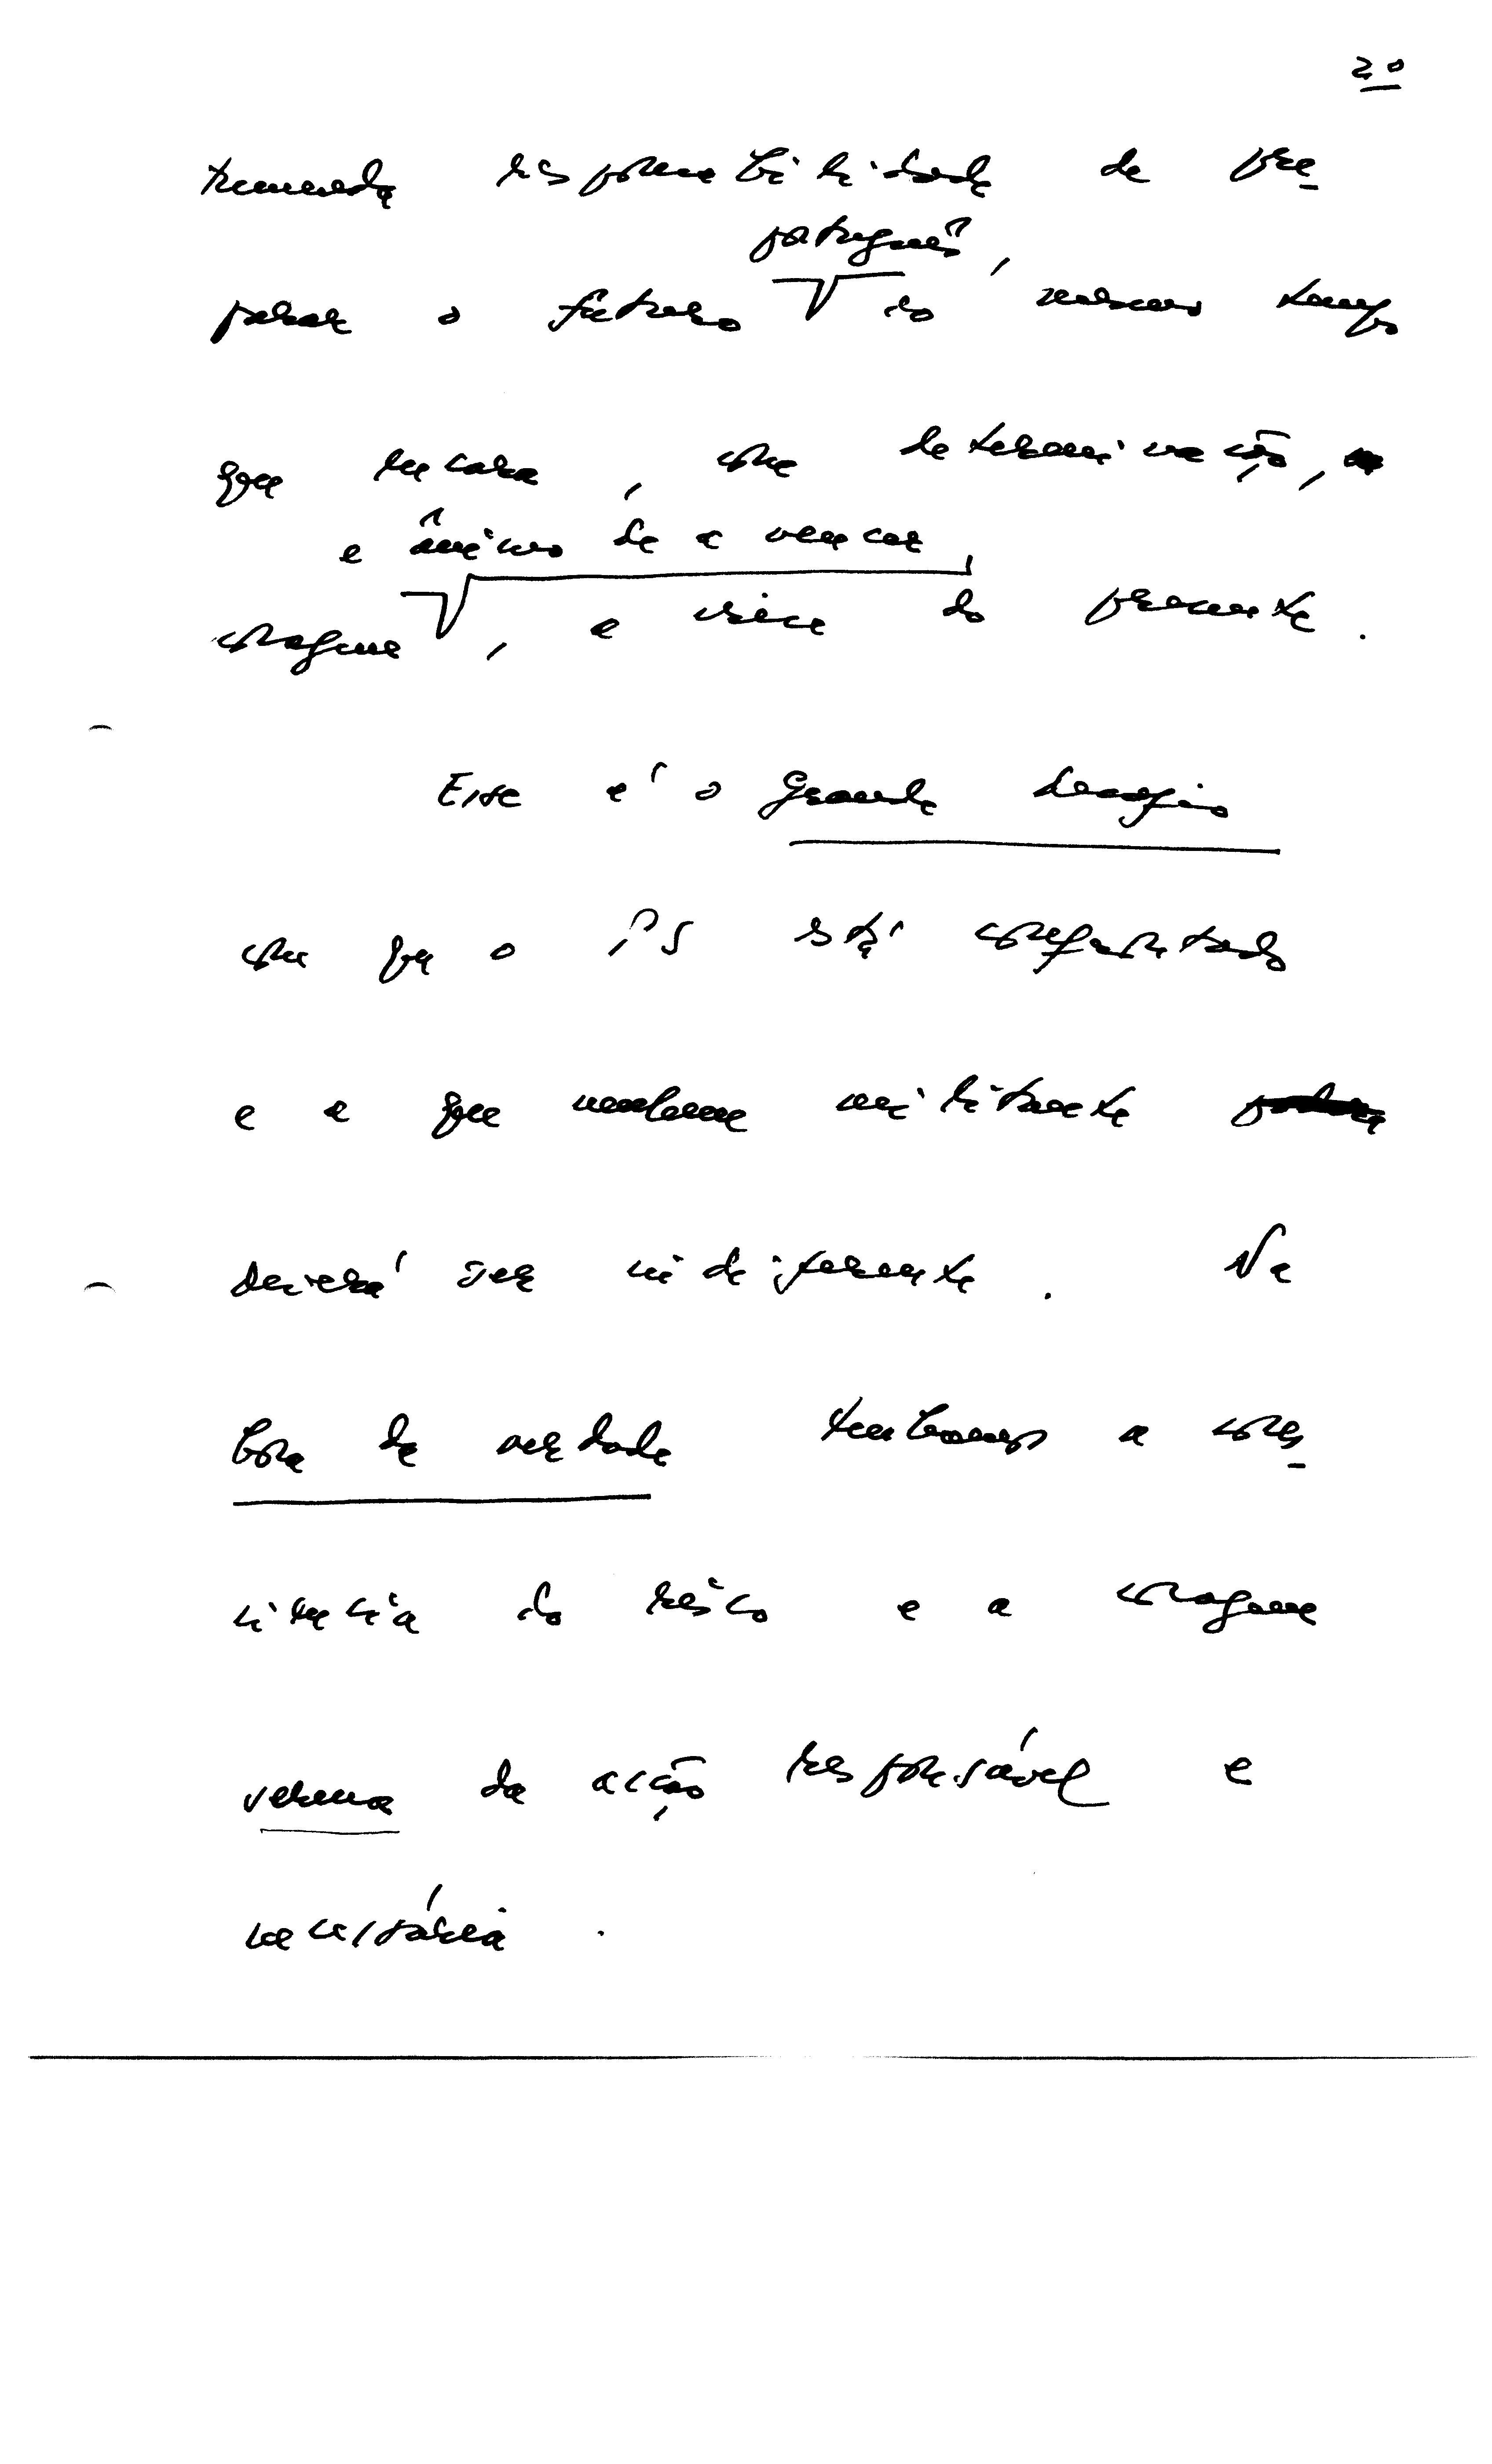 20
tremenda responsabilidade de pre-
português,
parar o futuro ao mesmo tempo
que encara, com determinação,
e ânimo de a vencer,
coragem, a crise do presente.
Esse é o Grande desafio
com que o PS está confrontado
e a que nenhum militante
deverá ser indiferente. Na
hora da verdade tenhamos a cons-
ciência do risco e a coragem
serena da acção responsável e
necessária.